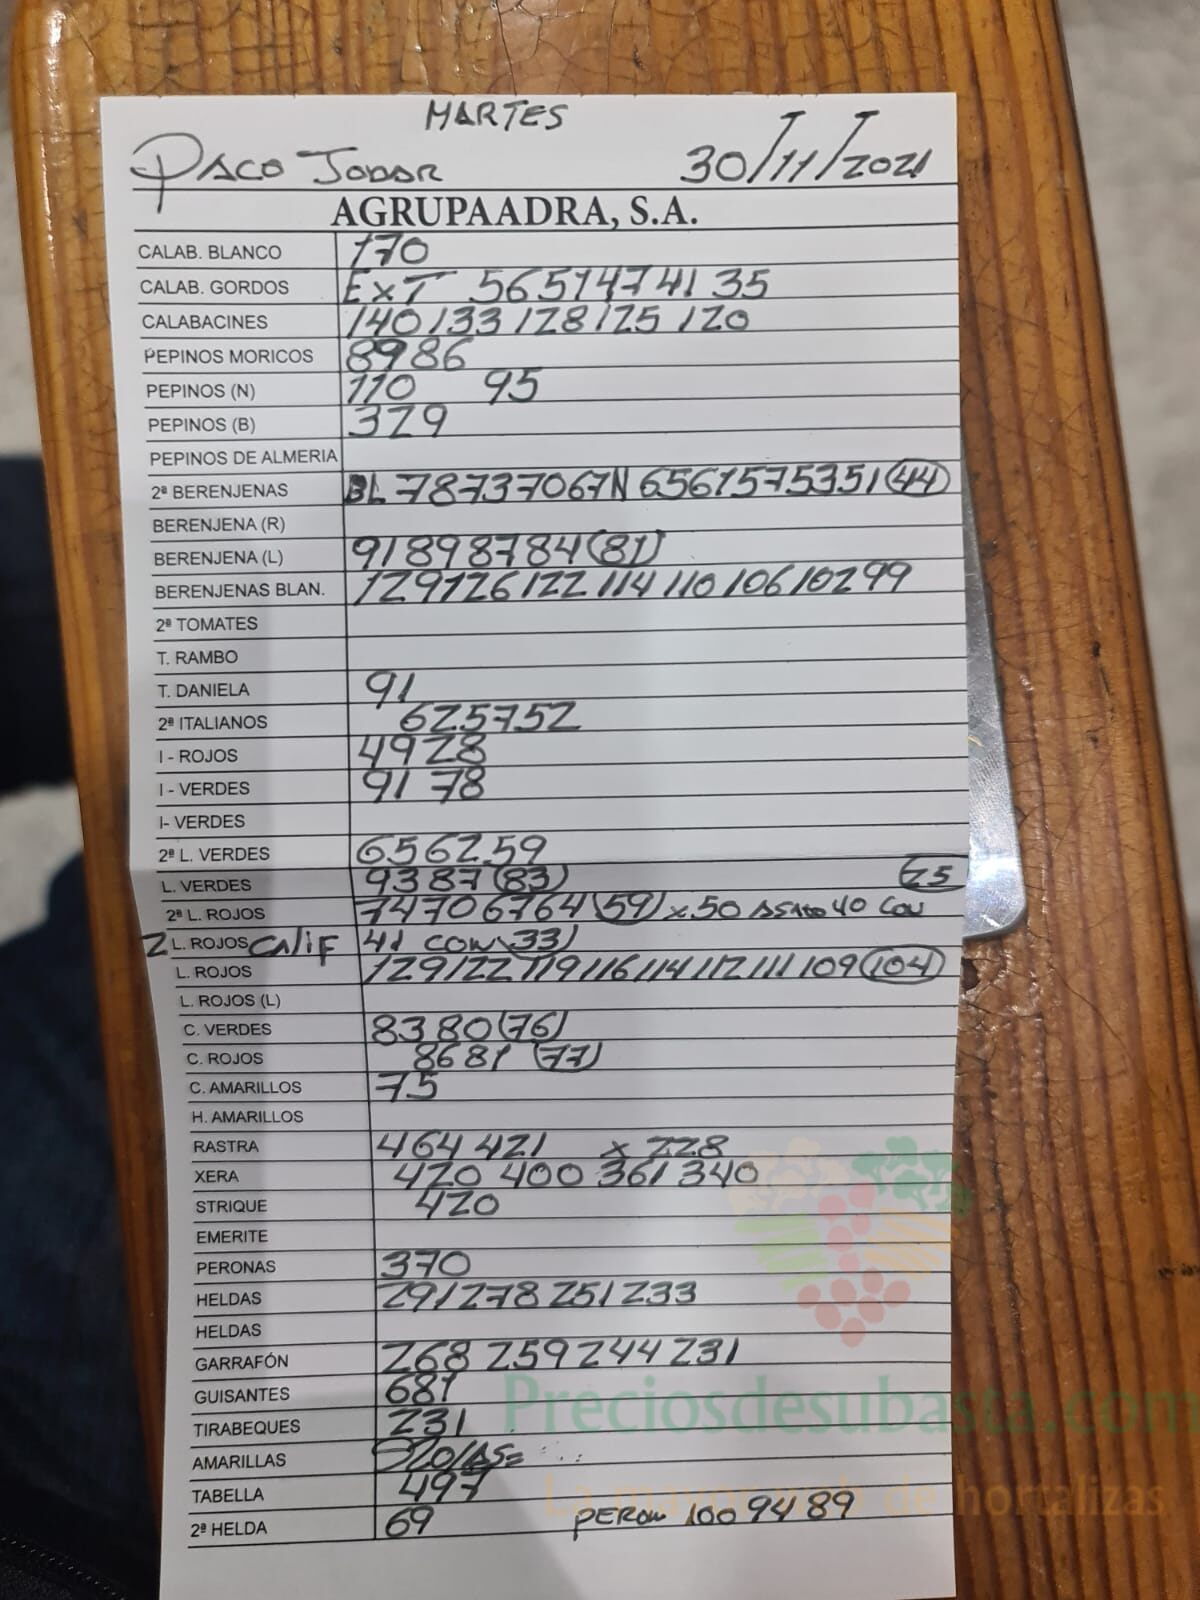 MARTES
PACO JODAR 30/11/2021
AGRUPAADRA, S.A.
CALAB. BLANCO 170
CALAB. GORDOS EXT 56 51 47 41 35
CALABACINES 140 133 128 125 120
PEPINOS MORICOS 89 86
PEPINOS (N) 110 95
PEPINOS (B) 329
PEPINOS DE ALMERIA
2ª BERENJENAS BL 78 73 70 67 N 65 61 57 53 51 (44)
BERENJENA (R)
BERENJENA (L) 91 89 87 84 (81)
BERENJENAS BLAN. 129 126 122 114 110 106 102 99
2ª TOMATES
T. RAMBO
T. DANIELA 91
2ª ITALIANOS 62 57 52
I - ROJOS 49 28
I - VERDES 91 78
I- VERDES
2ª L. VERDES 65 62 59
L. VERDES 93 87 (83) (25)
2ª L. ROJOS 74 70 67 64 (59) x 50 ASADO 40 CON
2 L. ROJOS CALIF 41 CON (33)
L. ROJOS 129 122 119 116 114 112 111 109 (104)
L. ROJOS (L)
C. VERDES 83 80 (76)
C. ROJOS 86 81 (77)
C. AMARILLOS 75
H. AMARILLOS
RASTRA 464 421 x 228
XERA 420 400 361 340
STRIQUE 420
EMERITE
PERONAS 370
HELDAS 291 278 251 233
HELDAS
GARRAFÓN 268 259 244 231
GUISANTES 681
TIRABEQUES 231
AMARILLAS
TABELLA 497
2ª HELDA 69 PERON 100 94 89
Preciosdesubasta.com
La mayor web de hortalizas